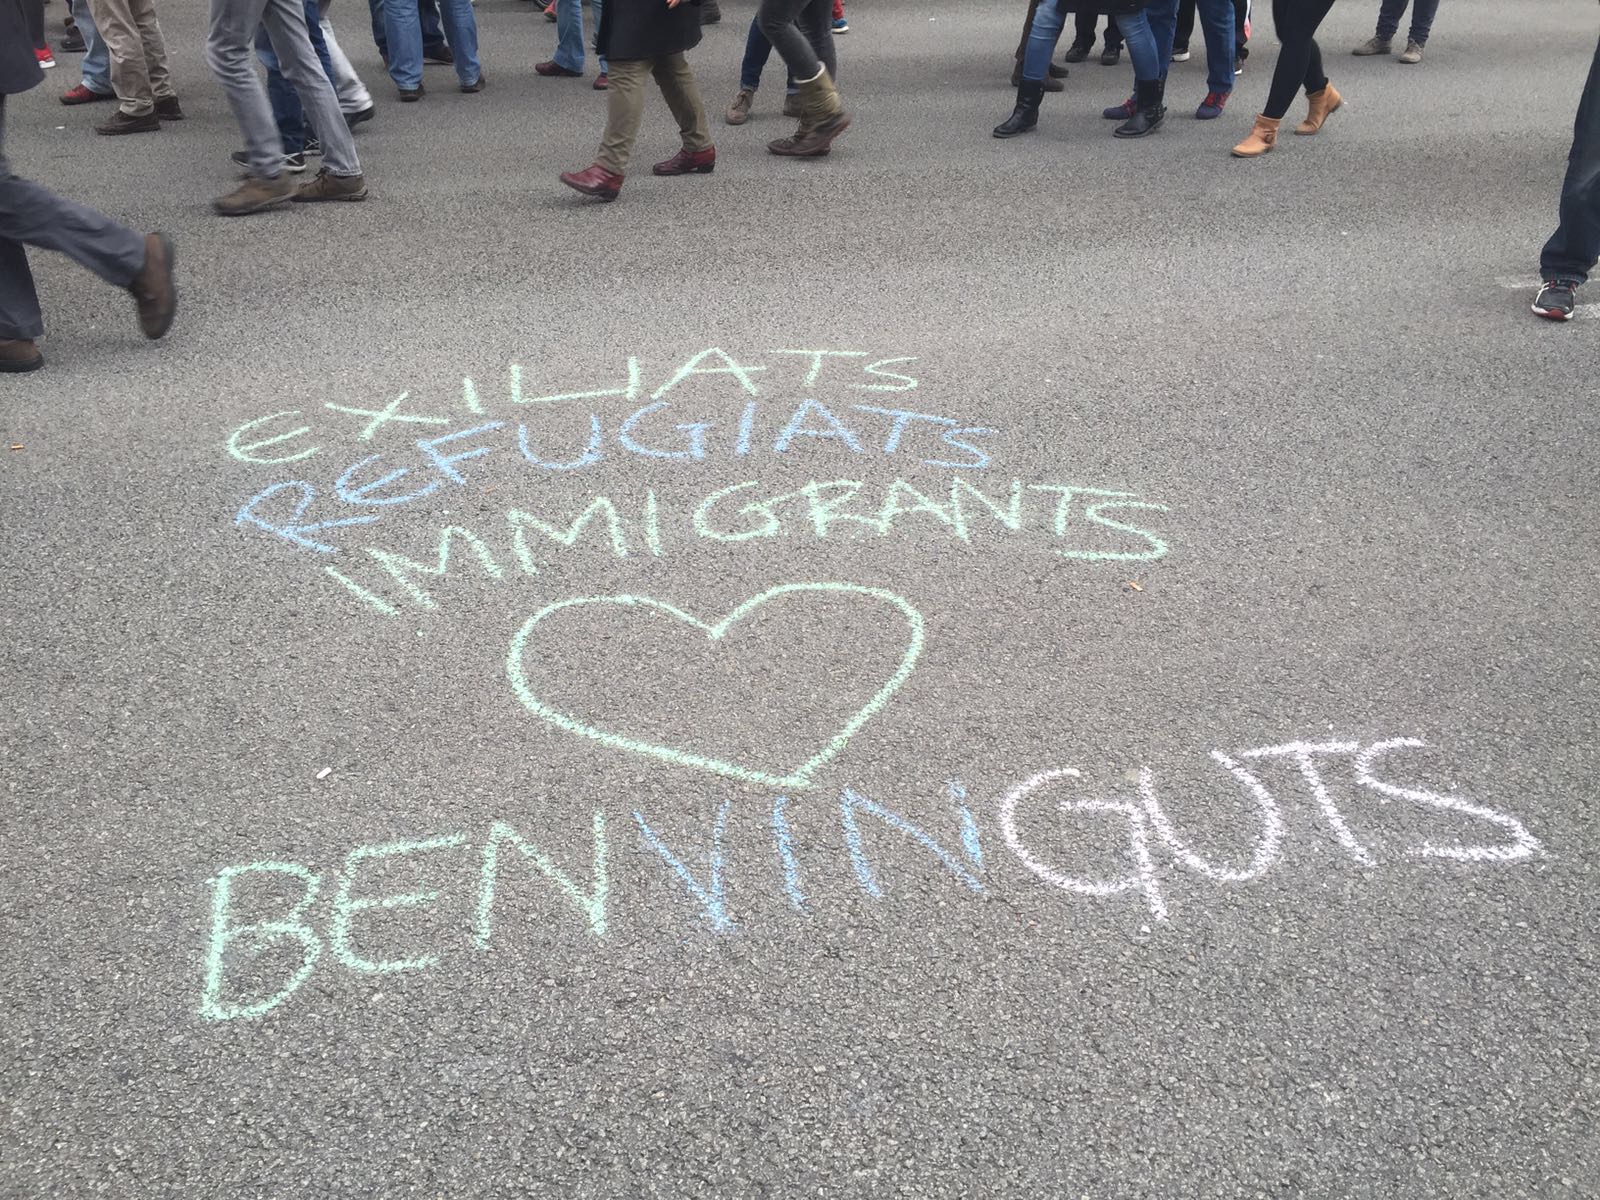 EXILIATS
REFUGIATS
IMMIGRANTS
BENVINGUTS